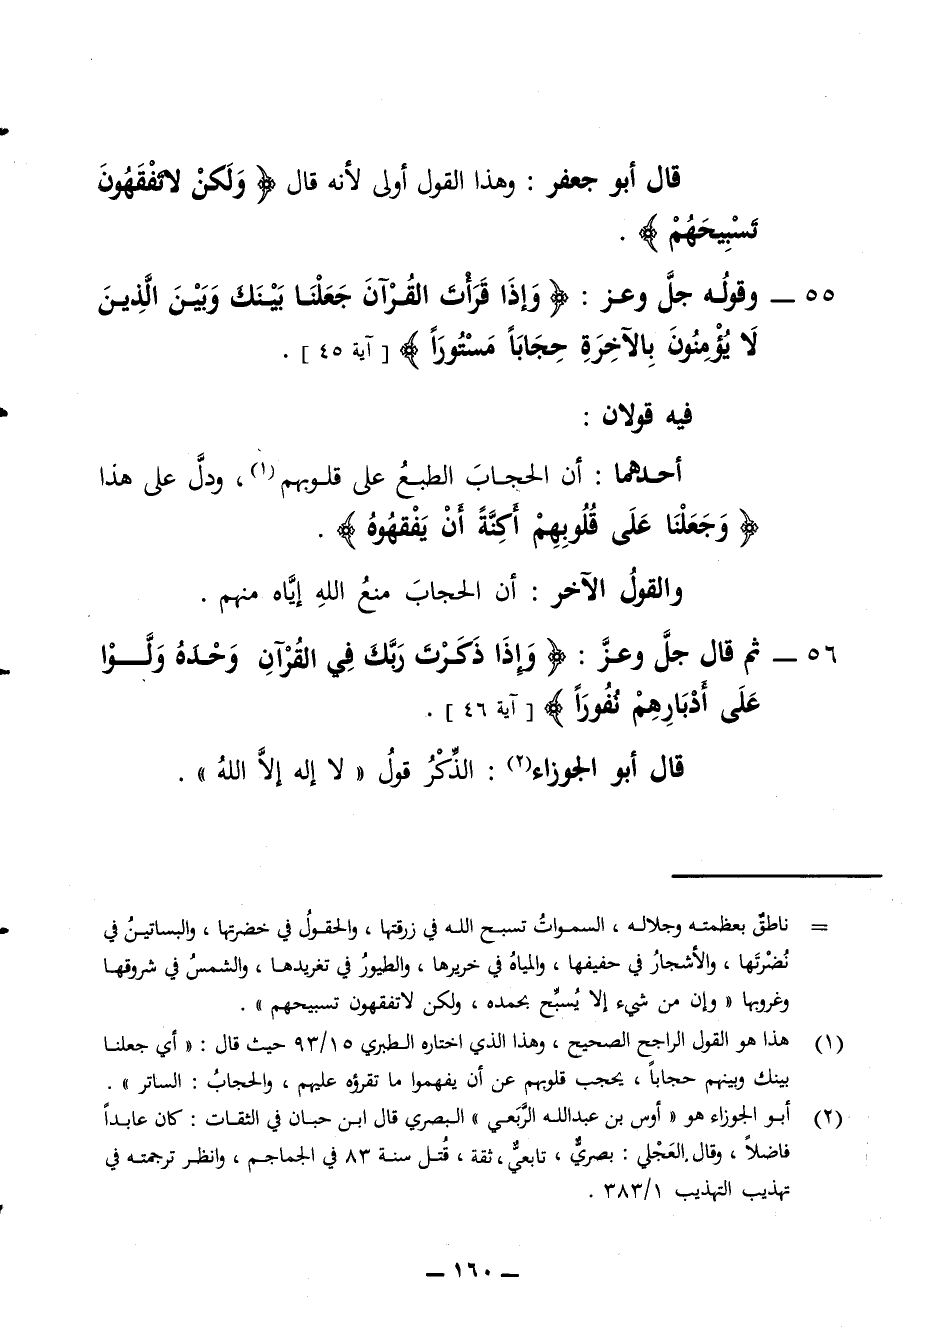 قال أبو جعفر : وهذا القول أولى لأنه قال ﴿ وَلَكنْ لاتَفْقَهُونَ
تَسْبِيحَهُمْ ﴾ .
٥٥ ــ وقولُه جلَّ وعـز : ﴿ وَإِذَا قَرَأْتَ القُرْآنَ جَعَلْنَا بَيْنَكَ وَبَيْنَ الَّذِينَ
لَا يُؤْمِنُونَ بِالآخِرَةِ حِجَابَاً مَسْتُورَاً ﴾ [ آية ٤٥ ] .
فيه قولان :
أحـدهما : أن الحجـابَ الطبـعُ على قلـوبهم(١) ، ودلَّ على هذا
﴿ وَجَعَلْنَا عَلَى قُلُوبِهِمْ أَكِنَّةً أَنْ يَفْقهُوهُ ﴾ .
والقولُ الآخر : أن الحجابَ منعُ اللهِ إيَّاه منهم .
٥٦ ــ ثم قال جلَّ وعزَّ : ﴿ وَإِذَا ذَكَرْتَ رَبَّكَ فِي القُرْآنِ وَحْدَهُ وَلَّـوْا
عَلَى أَدْبَارِهِمْ نُفُورَاً ﴾ [ آية ٤٦ ] .
قال أبو الجوزاء(٢) : الذِّكْرُ قولُ « لا إله إلاَّ اللهُ » .
= ناطقٌ بعظمتـه وجلالـه ، السمـواتُ تسبـح اللـه في زرقتها ، والحقـولُ في خضرتها ، والبساتيـنُ في
نُضْرتَها ، والأشجارُ في حفيفها ، والمياهُ في خريرها ، والطيورُ في تغريدهـا ، والشمسُ في شروقهـا
وغروبها « وإن من شيء إلا يُسبِّح بحمده ، ولكن لاتفقهون تسبيحهم » .
(١) هذا هو القول الراجح الصحيح ، وهذا الذي اختاره الـطبري ٩٣/١٥ حيث قال : « أي جعلنـا
بينك وبينهم حجاباً ، يحجب قلوبهم عن أن يفهموا ما تقرؤه عليهم ، والحجابُ : الساتر » .
(٢) أبـو الجوزاء هو « أوس بن عبدالله الرَّبَعي » البـصري قال ابـن حبـان في الثقـات : كان عابـداً
فاضلاً ، وقال العَجْلي : بصريٌّ ، تابعيٌّ ، ثقة ، قُتـل سنـة ٨٣ في الجماجـم ، وانظـر ترجمتـه في
تهذيب التهذيب ٣٨٣/١ .
ــ ١٦٠ ــ